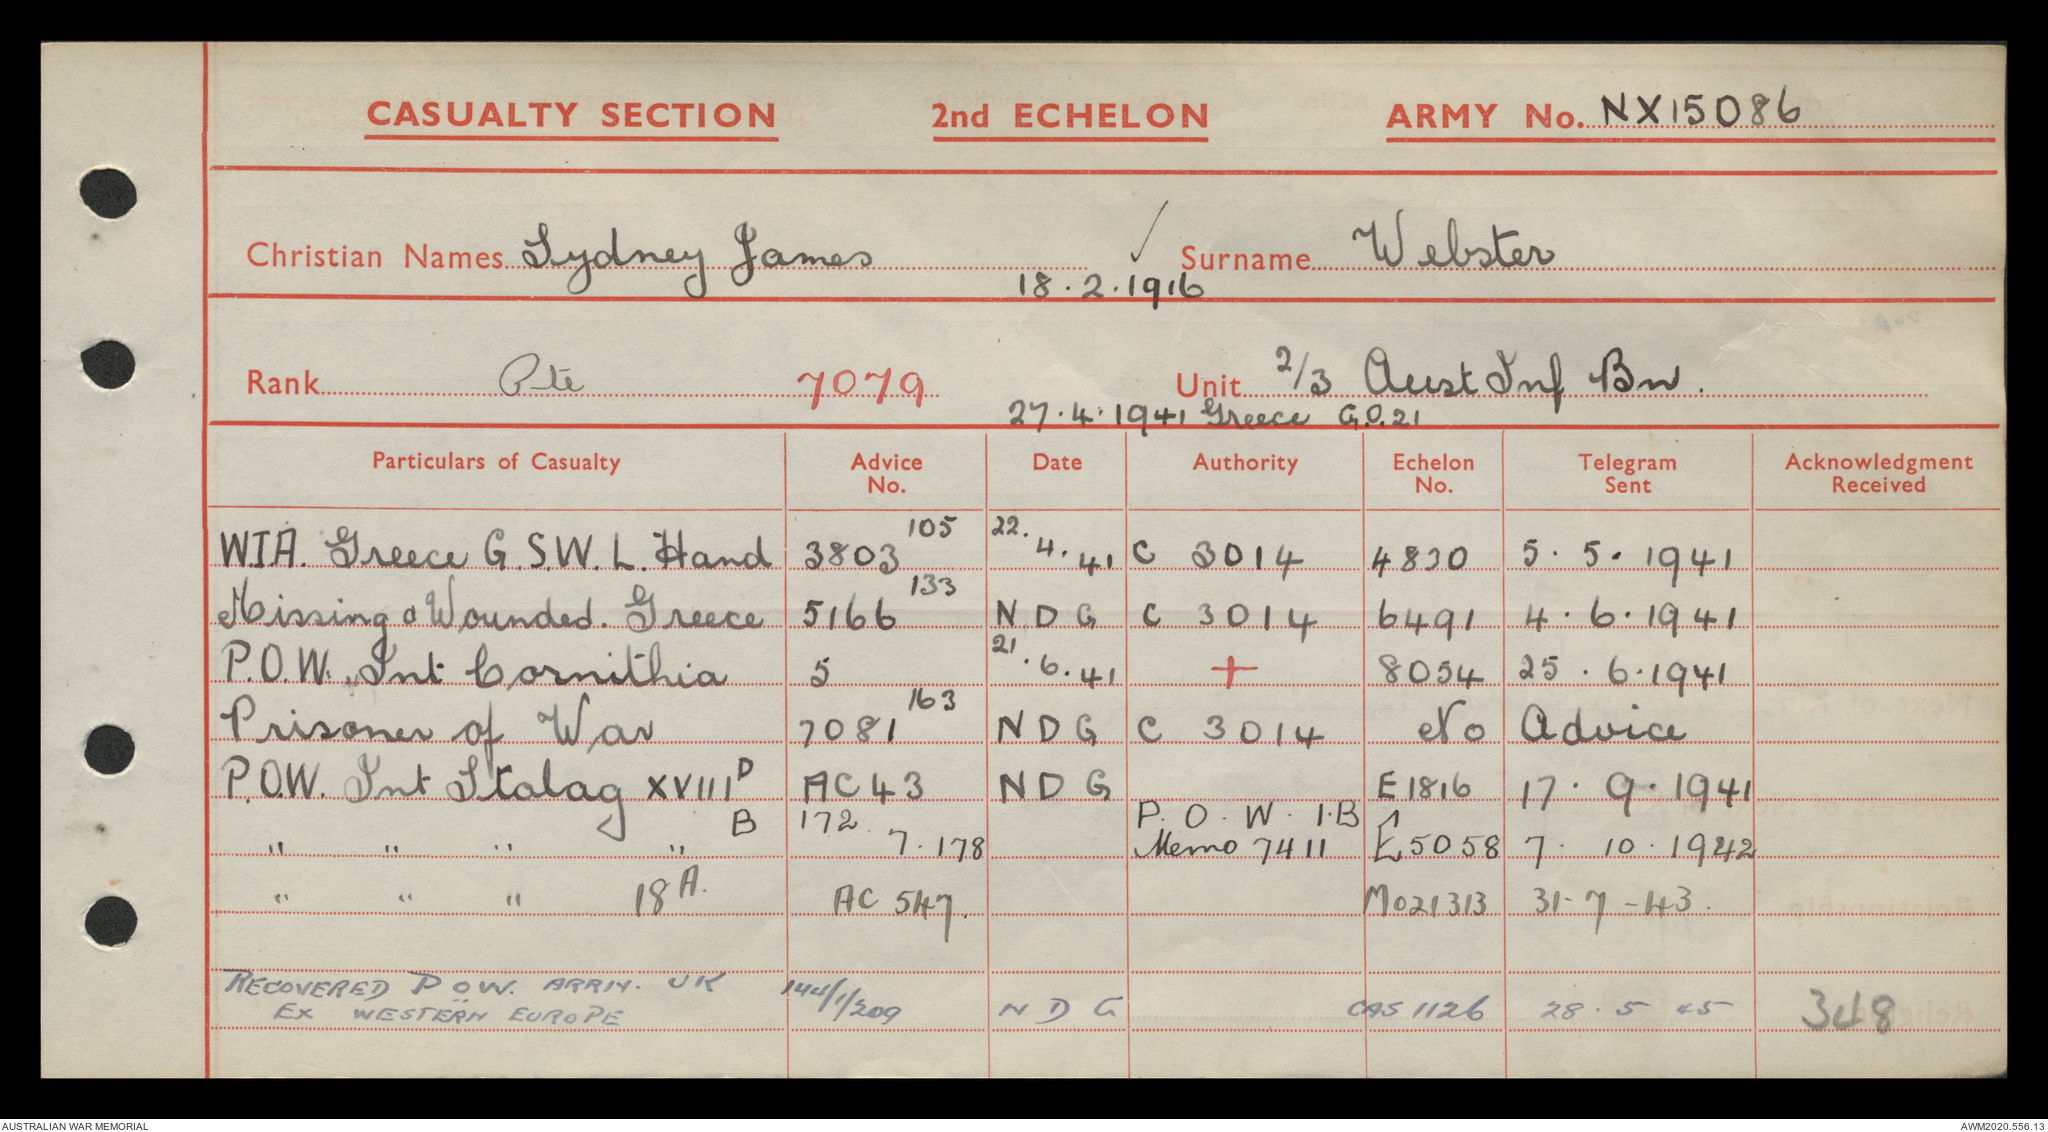 CASUALTY SECTION 2nd ECHELON ARMY No. NX15086
Christian Names Sydney James Surname Webster
18.2.1916
Rank Pte 7079 Unit 2/3 Aust Inf Bn.
27.4.1941 Greece G.O.21
Particulars of Casualty Advice No. Date Authority Echelon No. Telegram Sent Acknowledgment Received
W.I.A. Greece G.S.W. L. Hand 3803 105 22.4.41 C 3014 4830 5.5.1941
Missing & Wounded. Greece 5166 133 N D G C 3014 6491 4.6.1941
P.O.W. Int Cornithia 5 21.6.41 + 8054 25.6.1941
Prisoner of War 7081 163 N D G C 3014 No Advice
P.O.W. Int Stalag XVIII D AC 43 N D G E1816 17.9.1941
" " " " B 172 7.178 P.O.W. I.B Memo 7411 E5058 7.10.1942
" " " 18 A. AC 547. M021313 31-7-43.
RECOVERED P.O.W. ARRIV. UK 144/1/209 N D G CAS 1126 28.5 45 348
EX WESTERN EUROPE
AUSTRALIAN WAR MEMORIAL AWM2020.556.13